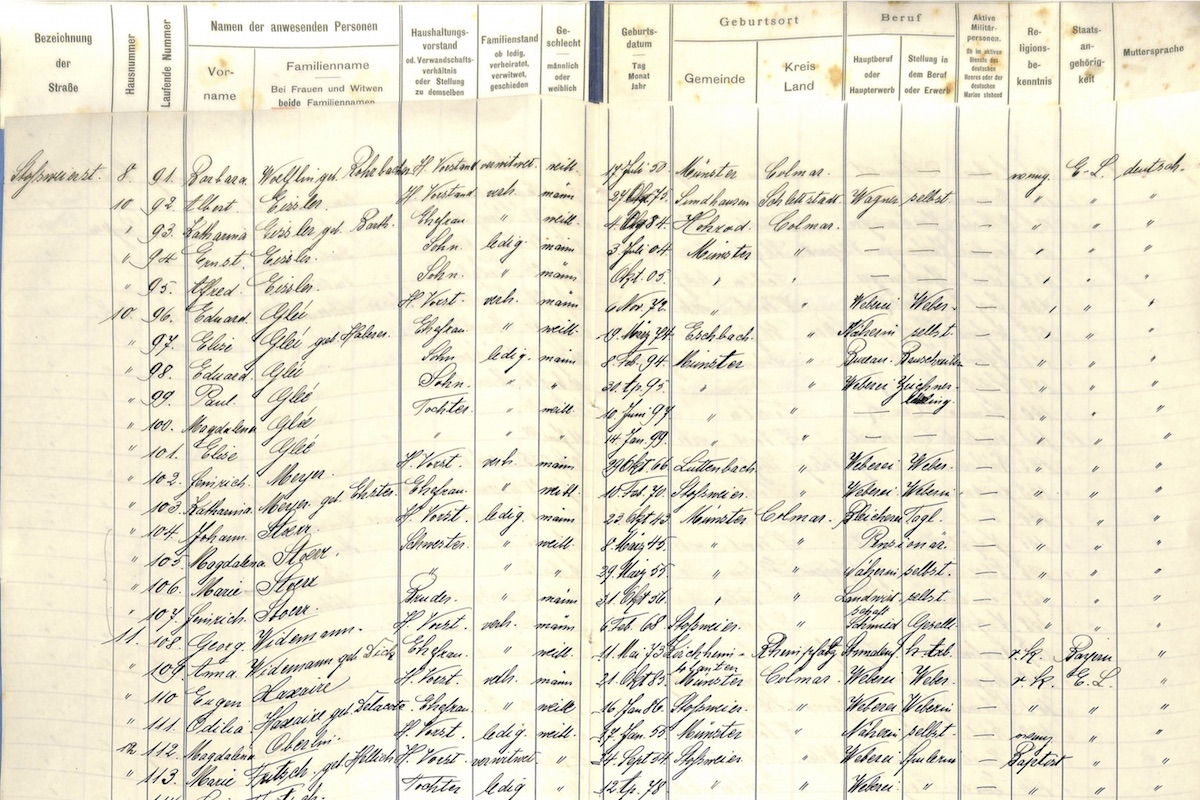 Bezeichnung der Straße | Hausnummer | Laufende Nummer | Namen der anwesenden Personen | Haushaltungsvorstand od. Verwandschaftsverhältnis oder Stellung zu demselben | Familienstand ob ledig, verheiratet, verwitwet, geschieden | Geschlecht männlich oder weiblich | Geburtsdatum Tag Monat Jahr | Geburtsort | Beruf | Aktive Militärpersonen. Ob im aktiven Dienste des deutschen Heeres oder der deutschen Marine stehend | Religionsbekenntnis | Staatsangehörigkeit | Muttersprache
Vorname | Familienname Bei Frauen und Witwen beide Familiennamen | Gemeinde | Kreis Land | Hauptberuf oder Haupterwerb | Stellung in dem Beruf oder Erwerb
Stoßweierst. 8. 91. Barbara Woelflin geb. Rohrbacher H. Vorstand verwitwet. weibl. 17 Juli 50 Münster Colmar. — — — evang. E.-L. deutsch.
10 92. Albert Eissler. H. Vorstand verh. männ 73. Sundhausen Schlettstadt. Wagner selbst — " " "
" 93. Katharina Eissler geb. Barth. Ehefrau " weibl. 84. Hohrod. Colmar. — — — " " "
" 94 Ernst. Eissler. Sohn. ledig männ 3 Juli 04. Münster " — — " " "
" 95. Alfred. Eissler. Sohn. " männ Okt. 05. " " — — — " " "
10. 96. Eduard. Glé H. Vorst. verh. männ 6 Nov. 72. " " Weberei Weber. — " " "
" 97. Elise Glé geb. Ehefrau " weibl. 19 März 74 Eschbach. " Näherin selbst. — " " "
" 98. Eduard Glé Sohn ledig. männ 8. Feb. 94 Münster " Bureau. — " " "
" 99. Paul. Glé Sohn. " " 95 " " Weberei Zeichner- lehrling. — " " "
" 100. Magdalena Glé Tochter. " weibl. 10 Juni 97 " " — — — " " "
" 101. Elise Glé " " " 14 Jan. 99. " " — — — " " "
" 102. Heinrich. Meyer. H. Vorst. verh. männ 29 Okt. 66 Luttenbach " Weberei Weber. — " " "
" 103. Katharina Meyer, geb. Ehefrau. " weibl. 10 Feb. 70 Stoßweier. " Weberei Weberin. — " " "
" 104. Johann Stoerr H. Vorst. ledig. männ 43. Münster Colmar. Bleicherei Tagl. — " " "
" 105. Magdalena Stoerr. Schwester. " weibl. 8. März 45. " " Pensionär. — " " "
" 106. Marie Stoerr " " " 29. März 55 " " Näherin selbst. — " " "
" 107. Heinrich. Stoerr. Bruder. " männ 31. Okt 56 " " Landwirtschaft selbst. — " " "
11. 108. Georg Widemann. H. Vorst. verh. männ 6 Feb. 68 Stoßweier. " Schmied Gesell. — " " "
" 109. Anna Widemann geb. Dick Ehefrau. " weibl. 11. Mai 73 Rheinpfalz — r. K. Bayern "
" 110 Eugen Haxaire H. Vorst. verh. männ 21. Okt 83. Münster Colmar. Weberei Weber. — r. K. E. L. "
" 111. Odilia Haxaire geb. Ehefrau " weibl 16 Jan 86. Stoßweier. " Weberei Weberin — " " "
112. Magdalena Oberlin. H. Vorst. ledig. weibl. 17 Jan. 55 Münster " Näherin selbst. — evang " "
" 113. Marie Fritsch, geb. H. Vorst. verwitwet " 24 Sept 54 Stoßweier. " Weberei Spulerin — Baptist " "
Tochter ledig " 12. 78 " " Weberei. " — " " "